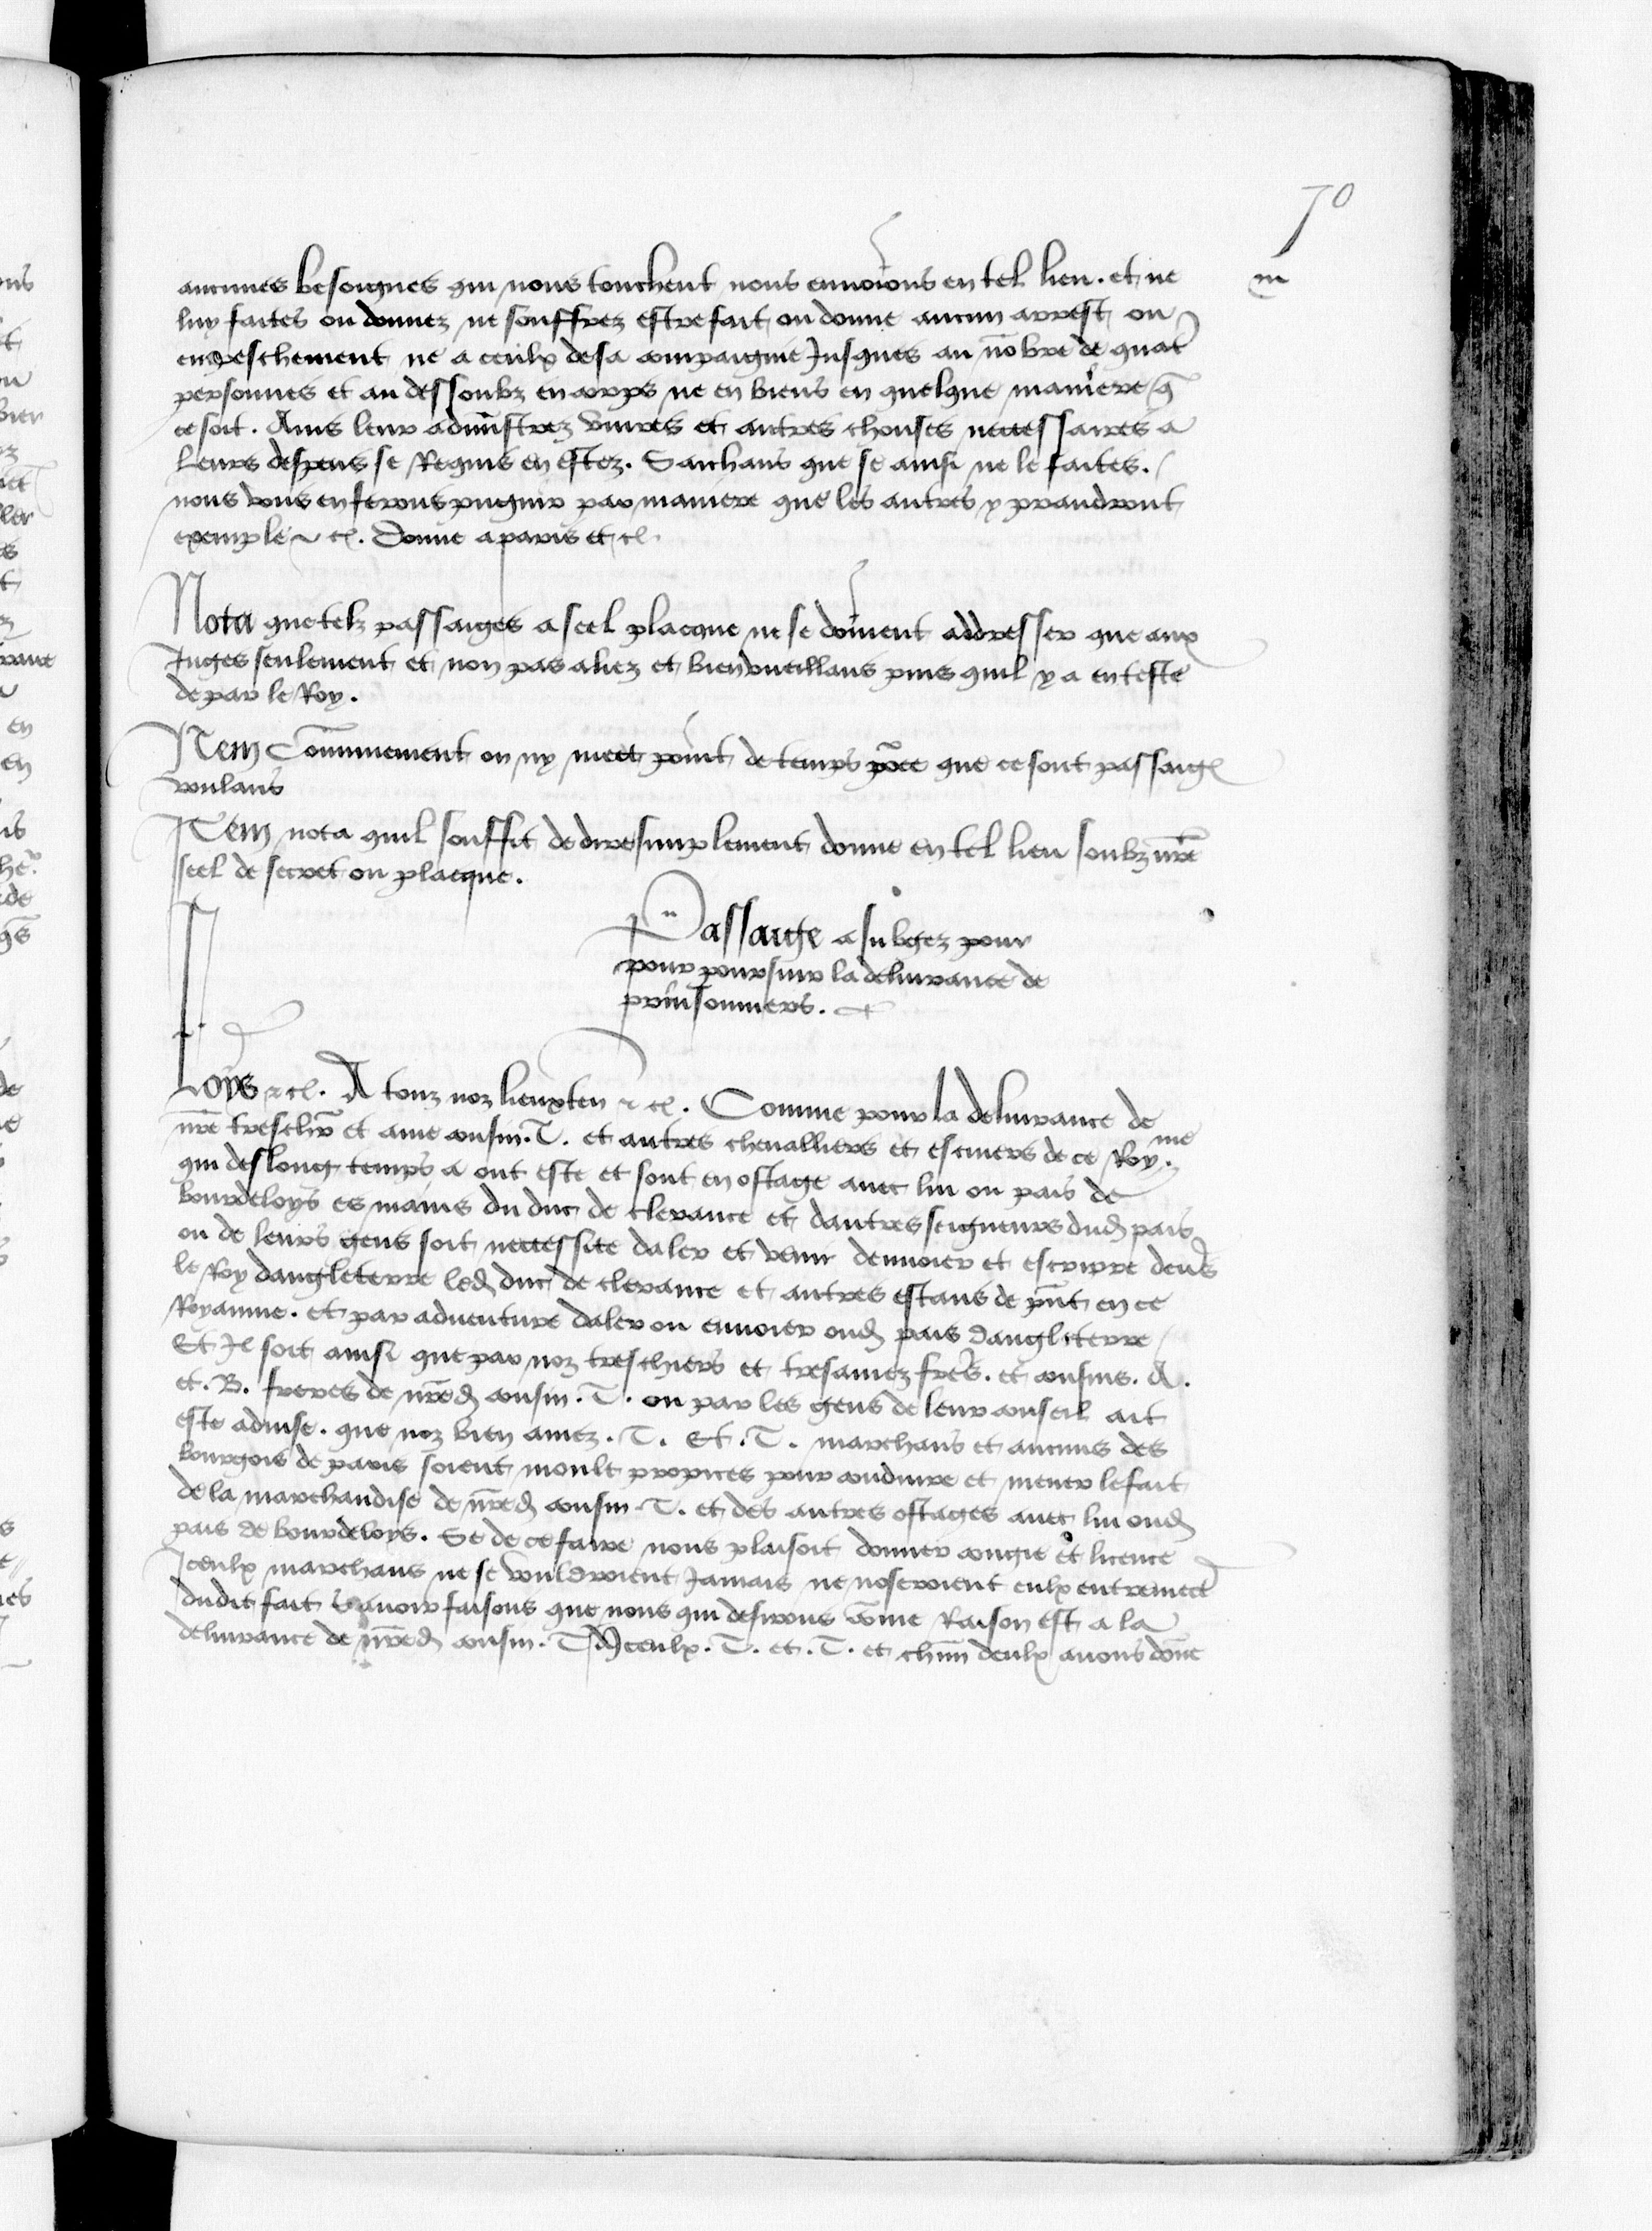 70
aucunes besoignes qui nous touchent nous envoions en tel lieu. et ne
luy faites ou donnez ne souffrez estre fait ou donne aucun arrest ou
empeschement ne a ceulx de sa compaignie Jusques au nōbre de quat͛
personnes et au dessoubz en corps ne en biens en quelque maniere q̄
ce soit. Ains leur admīistrez vivres et autres chouses neccessaires a
Leurs despens se Requis en estez. Saichans que se ainsi ne le faites.
nous vous en ferons pugnir par maniere que les autres y prandront
exemple ⁊ c̄. Donne a paris etc̄.
Nota que telz passaiges a scel placque ne se doivent addresser que aux
Juges seulement et non pas aliez et bienvueillans puis quil y a en teste
de par le Roy.
Item Cōmunement on ny mect point de temps pͣrce que ce sont passaiges
voulans
Item nota quil souffit de dire simplement donne en tel lieu soubz nr̄e
scel de secret ou placque.
Passaige a subgez pour
pour poursuir la delivrance de
prinsonniers.
Loys ⁊ c̄. A touz noz lieuxten ⁊ c̄. Comme pour la delivrance de
nr̄e treschr̄ et ame cousin. T. et autres chevalliers et escuiers de ce Roy.me
qui des long temps a ont este et sont en ostage avec lui ou pais de
bourdeloys es mains du duc de clerance et dautres seigneurs dud pais
ou de leurs gens soit neccessite daler et venir denvoier et escripre devs̄
le Roy dangleterre led duc de clerance et autres estans de pn̄t en ce
Royaume. et par adventure daler ou envoier oud pais dangleterre
Et Il soit ainsi que par noz treschiers et tresamez frēs. et cousins. A.
et. B. freres de nr̄ed cousin. T. ou par les gens de leur conseil ait
este advise. que noz bien amez. T. Et. T. marchans et aucuns des
bourgois de paris soient moult propices pour conduire et mener le fait
de la marchandise de nr̄ed cousin. T. et des autres ostages avec lui oud
pais de bourdeloys. Se de ce faire nous plaisoit donner congie et licence
Iceulx marchans ne se vouldroient Jamais ne noseroient eulx entremect͛
dudit fait Savoir faisons que nous qui desirons cōme Raison est a la
delivrance de nr̄ed cousin. T. A Iceulx. T. et. T. et chūn deulx avons dōne